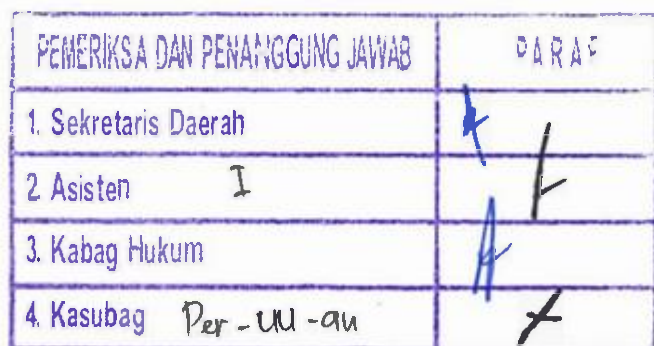 PEMERIKSA DAN PENANGGUNG JAWAB PARAF
1. Sekretaris Daerah
2 Asisten I
3. Kabag Hukum
4. Kasubag Per-UU-an